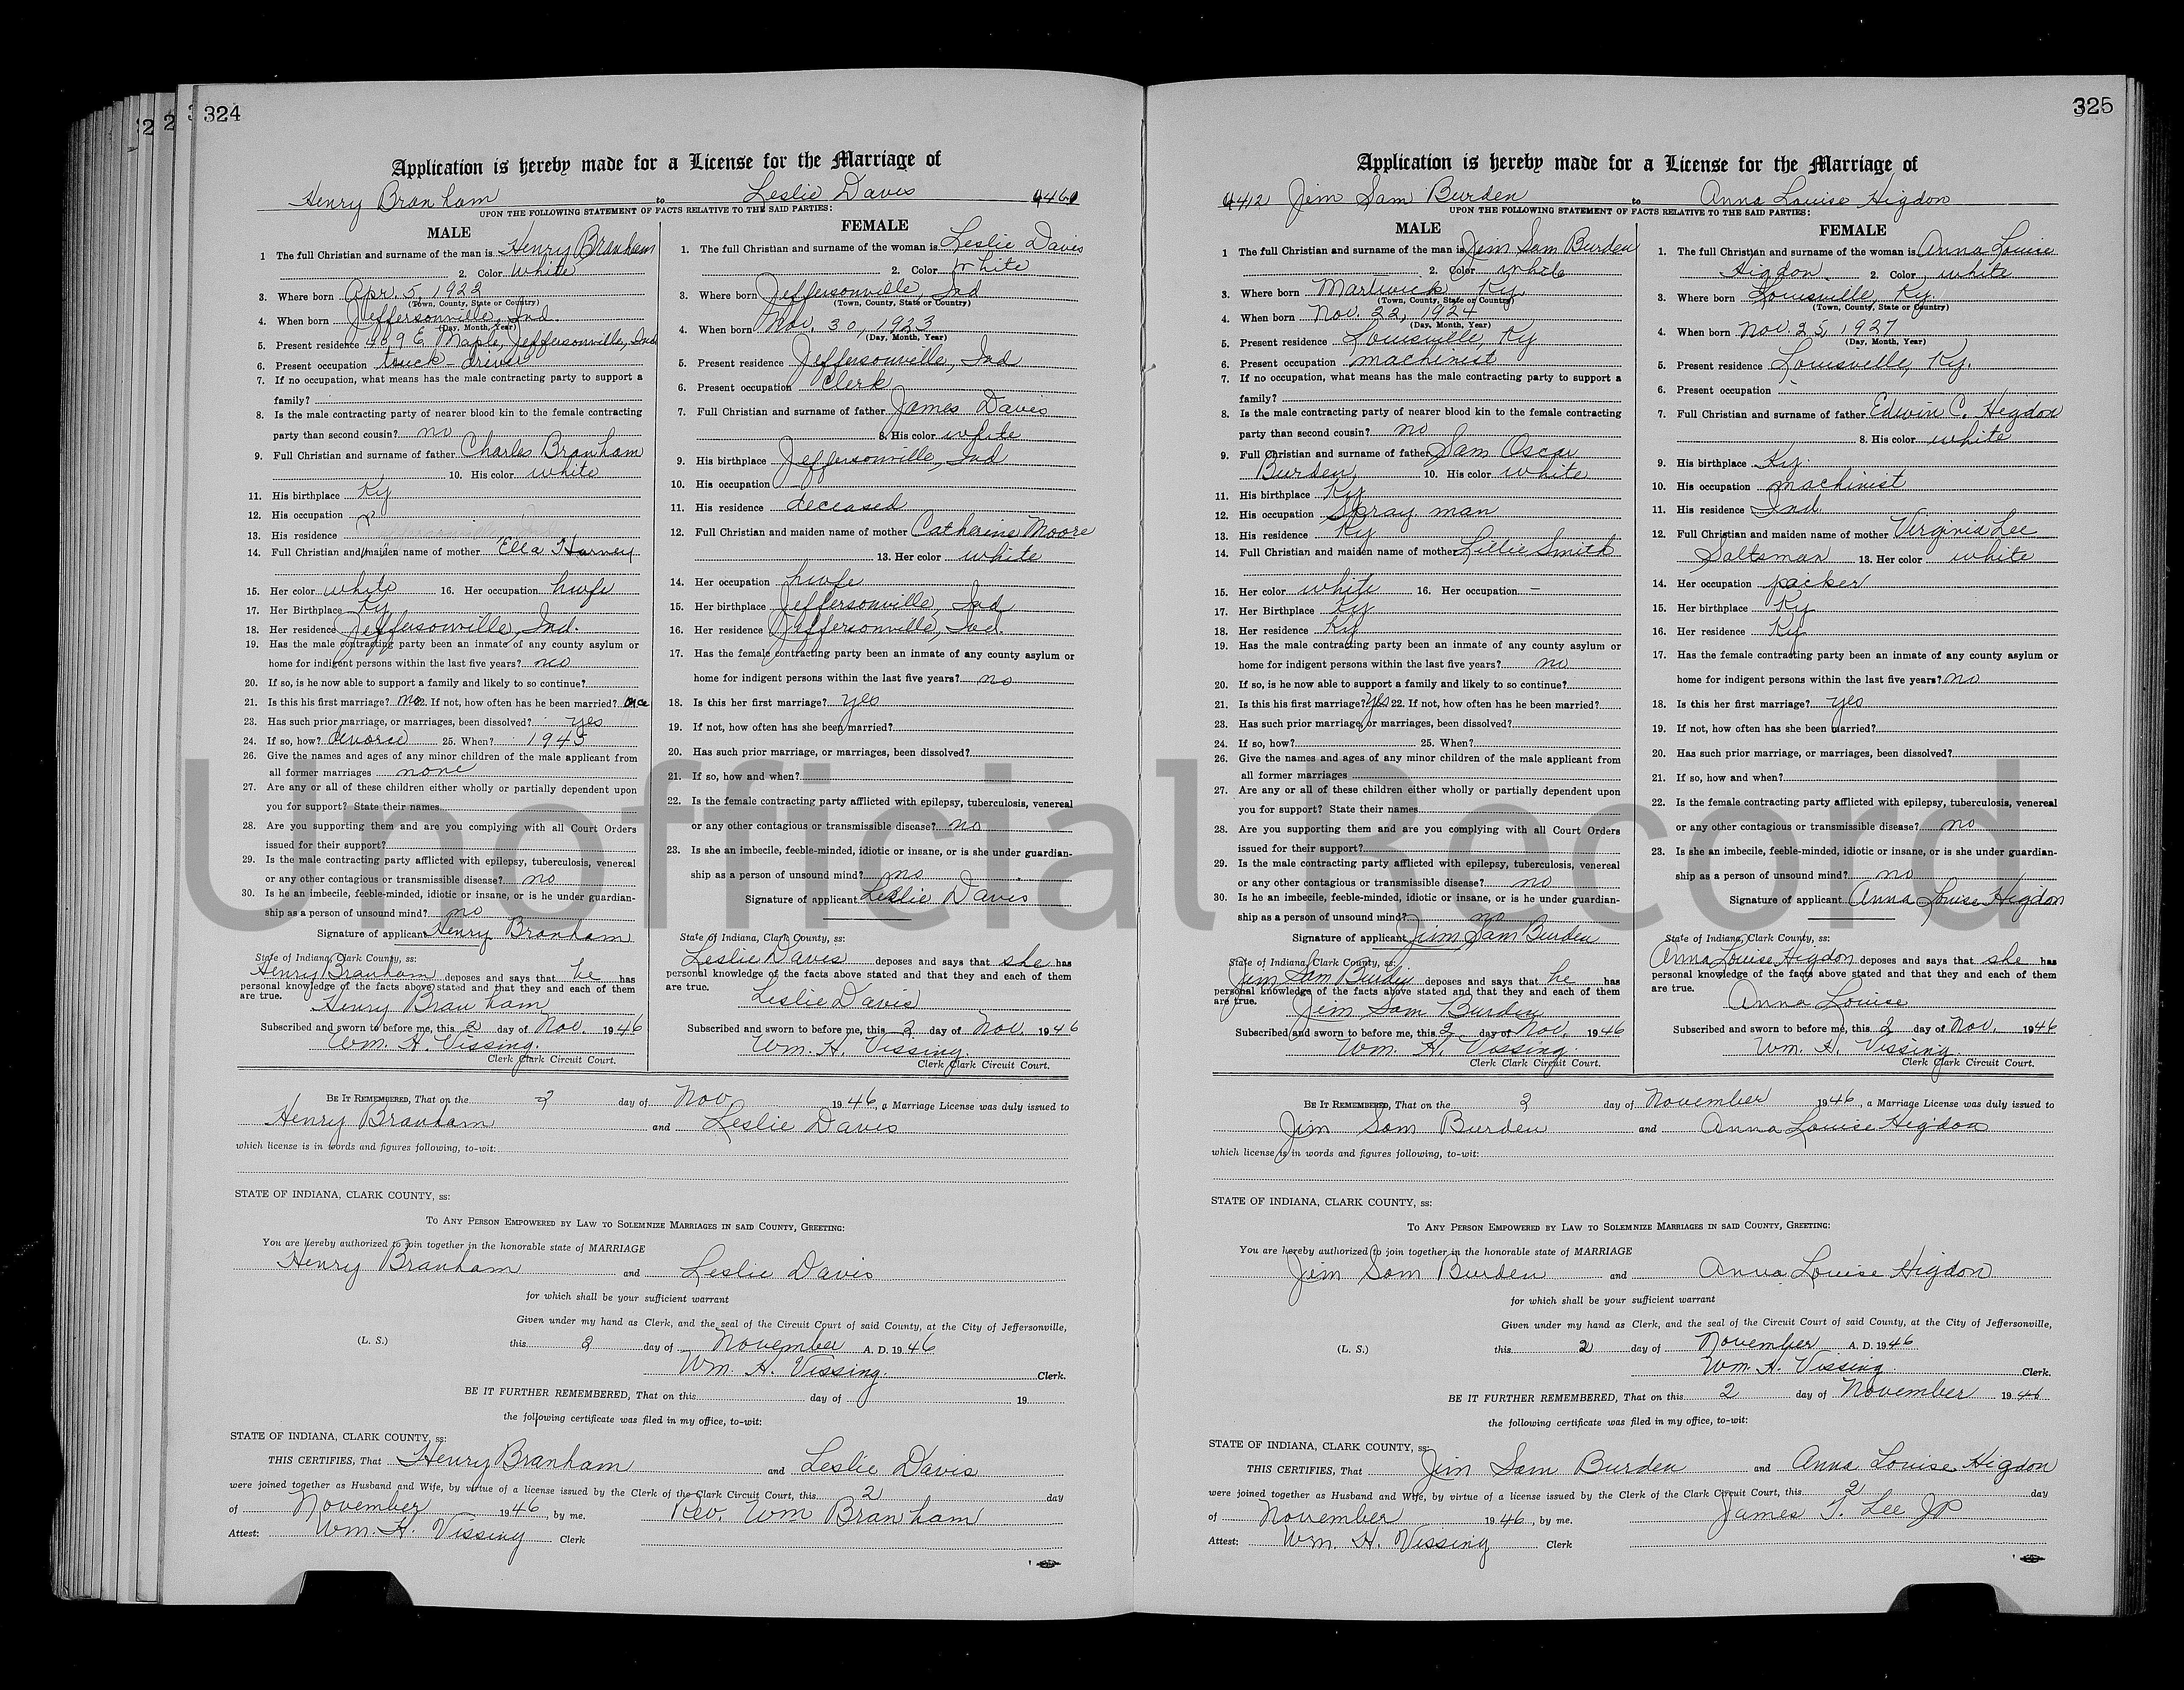 324
Application is hereby made for a License for the Marriage of
Henry Branham to Leslie Davis
UPON THE FOLLOWING STATEMENT OF FACTS RELATIVE TO THE SAID PARTIES:
MALE
1 The full Christian and surname of the man is Henry Branham
2. Color White
3. Where born Apr. 5, 1922
(Town, County, State or Country)
4. When born Jeffersonville, Ind
(Day, Month, Year)
5. Present residence 409 E Maple, Jeffersonville, Ind
6. Present occupation truck driver
7. If no occupation, what means has the male contracting party to support a
family?
8. Is the male contracting party of nearer blood kin to the female contracting
party than second cousin? no
9. Full Christian and surname of father Charles Branham
10. His color white
11. His birthplace Ky
12. His occupation
13. His residence
14. Full Christian and maiden name of mother Ella Harvey
15. Her color white 16. Her occupation hwfe
17. Her Birthplace Ky
18. Her residence Jeffersonville, Ind.
19. Has the male contracting party been an inmate of any county asylum or
home for indigent persons within the last five years? no
20. If so, is he now able to support a family and likely to so continue?
21. Is this his first marriage? no 22. If not, how often has he been married? once
23. Has such prior marriage, or marriages, been dissolved? yes
24. If so, how? divorce 25. When? 1945
26. Give the names and ages of any minor children of the male applicant from
all former marriages none
27. Are any or all of these children either wholly or partially dependent upon
you for support? State their names
28. Are you supporting them and are you complying with all Court Orders
issued for their support?
29. Is the male contracting party afflicted with epilepsy, tuberculosis, venereal
or any other contagious or transmissible disease? no
30. Is he an imbecile, feeble-minded, idiotic or insane, or is he under guardian-
ship as a person of unsound mind? no
Signature of applicant Henry Branham
State of Indiana, Clark County, ss:
Henry Branham deposes and says that he has
personal knowledge of the facts above stated and that they and each of them
are true.
Henry Branham
Subscribed and sworn to before me, this 2 day of Nov. 1946
Wm. H. Vissing.
Clerk Clark Circuit Court.
FEMALE
1. The full Christian and surname of the woman is Leslie Davis
2. Color White
3. Where born Jeffersonville, Ind
(Town, County, State or Country)
4. When born Nov. 30, 1923
(Day, Month, Year)
5. Present residence Jeffersonville, Ind
6. Present occupation Clerk
7. Full Christian and surname of father James Davis
8. His color white
9. His birthplace Jeffersonville, Ind
10. His occupation
11. His residence deceased
12. Full Christian and maiden name of mother Catharine Moore
13. Her color white
14. Her occupation hwfe
15. Her birthplace Jeffersonville, Ind
16. Her residence Jeffersonville, Ind.
17. Has the female contracting party been an inmate of any county asylum or
home for indigent persons within the last five years? no
18. Is this her first marriage? yes
19. If not, how often has she been married?
20. Has such prior marriage, or marriages, been dissolved?
21. If so, how and when?
22. Is the female contracting party afflicted with epilepsy, tuberculosis, venereal
or any other contagious or transmissible disease? no
23. Is she an imbecile, feeble-minded, idiotic or insane, or is she under guardian-
ship as a person of unsound mind? no
Signature of applicant Leslie Davis
State of Indiana, Clark County, ss:
Leslie Davis deposes and says that she has
personal knowledge of the facts above stated and that they and each of them
are true.
Leslie Davis
Subscribed and sworn to before me, this 2 day of Nov. 1946
Wm. H. Vissing.
Clerk Clark Circuit Court.
BE IT REMEMBERED, That on the 2 day of Nov 1946, a Marriage License was duly issued to
Henry Branham and Leslie Davis
which license is in words and figures following, to-wit:
STATE OF INDIANA, CLARK COUNTY, ss:
TO ANY PERSON EMPOWERED BY LAW TO SOLEMNIZE MARRIAGES IN SAID COUNTY, GREETING:
You are hereby authorized to join together in the honorable state of MARRIAGE
Henry Branham and Leslie Davis
for which shall be your sufficient warrant
Given under my hand as Clerk, and the seal of the Circuit Court of said County, at the City of Jeffersonville,
(L. S.) this 2 day of November A. D. 1946
Wm. H. Vissing. Clerk.
BE IT FURTHER REMEMBERED, That on this day of 19
the following certificate was filed in my office, to-wit:
STATE OF INDIANA, CLARK COUNTY, ss:
THIS CERTIFIES, That Henry Branham and Leslie Davis
were joined together as Husband and Wife, by virtue of a license issued by the Clerk of the Clark Circuit Court, this 2 day
of November 1946, by me. Rev. Wm Branham
Attest: Wm. H. Vissing Clerk
325
Application is hereby made for a License for the Marriage of
Jim Sam Burden to Anna Louise Higdon
UPON THE FOLLOWING STATEMENT OF FACTS RELATIVE TO THE SAID PARTIES:
MALE
1 The full Christian and surname of the man is Jim Sam Burden
2. Color white
3. Where born Martwick Ky
(Town, County, State or Country)
4. When born Nov. 22, 1924
(Day, Month, Year)
5. Present residence Louisville, Ky
6. Present occupation machinist
7. If no occupation, what means has the male contracting party to support a
family?
8. Is the male contracting party of nearer blood kin to the female contracting
party than second cousin? no
9. Full Christian and surname of father Sam Oscar
Burden 10. His color white
11. His birthplace Ky
12. His occupation Spray man
13. His residence Ky
14. Full Christian and maiden name of mother Lillie Smith
15. Her color white 16. Her occupation –
17. Her Birthplace Ky
18. Her residence Ky
19. Has the male contracting party been an inmate of any county asylum or
home for indigent persons within the last five years? no
20. If so, is he now able to support a family and likely to so continue?
21. Is this his first marriage? Yes 22. If not, how often has he been married?
23. Has such prior marriage, or marriages, been dissolved?
24. If so, how? 25. When?
26. Give the names and ages of any minor children of the male applicant from
all former marriages
27. Are any or all of these children either wholly or partially dependent upon
you for support? State their names
28. Are you supporting them and are you complying with all Court Orders
issued for their support?
29. Is the male contracting party afflicted with epilepsy, tuberculosis, venereal
or any other contagious or transmissible disease? no
30. Is he an imbecile, feeble-minded, idiotic or insane, or is he under guardian-
ship as a person of unsound mind? no
Signature of applicant Jim Sam Burden
State of Indiana, Clark County, ss:
Jim Sam Burden deposes and says that he has
personal knowledge of the facts above stated and that they and each of them
are true.
Jim Sam Burden
Subscribed and sworn to before me, this 2 day of Nov. 1946
Wm. H. Vissing
Clerk Clark Circuit Court.
FEMALE
1. The full Christian and surname of the woman is Anna Louise
Higdon 2. Color white
3. Where born Louisville, Ky.
(Town, County, State or Country)
4. When born Nov. 25, 1927
(Day, Month, Year)
5. Present residence Louisville, Ky.
6. Present occupation
7. Full Christian and surname of father Edwin C. Higdon
8. His color white
9. His birthplace Ky.
10. His occupation machinist
11. His residence Ind.
12. Full Christian and maiden name of mother Virginia Lee
Saltsman 13. Her color white
14. Her occupation packer
15. Her birthplace Ky
16. Her residence Ky
17. Has the female contracting party been an inmate of any county asylum or
home for indigent persons within the last five years? no
18. Is this her first marriage? yes
19. If not, how often has she been married?
20. Has such prior marriage, or marriages, been dissolved?
21. If so, how and when?
22. Is the female contracting party afflicted with epilepsy, tuberculosis, venereal
or any other contagious or transmissible disease? no
23. Is she an imbecile, feeble-minded, idiotic or insane, or is she under guardian-
ship as a person of unsound mind? no
Signature of applicant Anna Louise Higdon
State of Indiana, Clark County, ss:
Anna Louise Higdon deposes and says that she has
personal knowledge of the facts above stated and that they and each of them
are true.
Anna Louise
Subscribed and sworn to before me, this 2 day of Nov. 1946
Wm. H. Vissing
Clerk Clark Circuit Court.
BE IT REMEMBERED, That on the 2 day of November 1946, a Marriage License was duly issued to
Jim Sam Burden and Anna Louise Higdon
which license is in words and figures following, to-wit:
STATE OF INDIANA, CLARK COUNTY, ss:
TO ANY PERSON EMPOWERED BY LAW TO SOLEMNIZE MARRIAGES IN SAID COUNTY, GREETING:
You are hereby authorized to join together in the honorable state of MARRIAGE
Jim Sam Burden and Anna Louise Higdon
for which shall be your sufficient warrant
Given under my hand as Clerk, and the seal of the Circuit Court of said County, at the City of Jeffersonville,
(L. S.) this 2 day of November A. D. 1946
Wm. H. Vissing Clerk.
BE IT FURTHER REMEMBERED, That on this 2 day of November 1946
the following certificate was filed in my office, to-wit:
STATE OF INDIANA, CLARK COUNTY, ss:
THIS CERTIFIES, That Jim Sam Burden and Anna Louise Higdon
were joined together as Husband and Wife, by virtue of a license issued by the Clerk of the Clark Circuit Court, this 2 day
of November 1946, by me. James T. Lee JP
Attest: Wm. H. Vissing Clerk
Unofficial Record